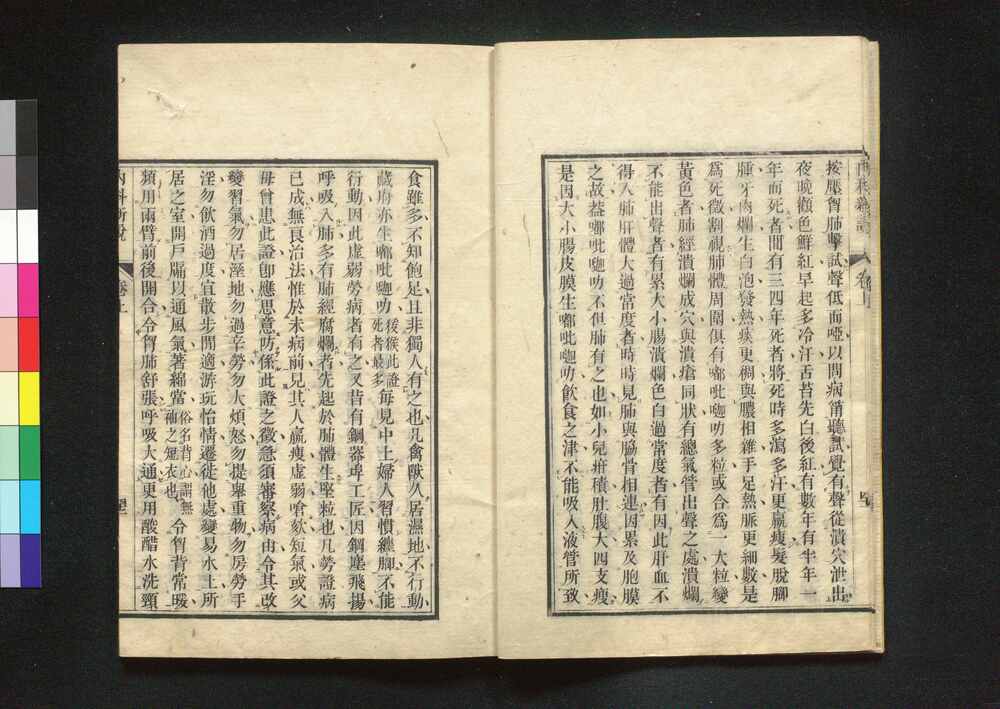 按脹胷肺擊試聲低而啞以問病筩聽試覺有聲從潰穴泄出
夜晚顴色鮮紅早起多冷汗舌苔先白後紅有數年有半年一
年而死者間有三四年死者將死時多瀉多汗更羸瘦髮脫腳
腫牙肉爛生白泡發熱痰更稠與膿相雜手足熱脈更細數是
爲死徵割視肺體周圍俱有嘟吡噝叻多粒或合爲一大粒變
黃色者肺經潰爛成穴與潰瘡同狀有總氣管出聲之處潰爛
不能出聲者有累大小腸潰爛色白過常度者有因此肝血不
得入肺肝體大過當度者時時見肺與脇骨相連因累及胞膜
之故葢嘟吡噝叻不但肺有之也如小兒疳積肚腹大四支瘦
是因大小腸皮膜生嘟吡噝叻飲食之津不能吸入液管所致
食雖多不知飽足且非獨人有之也凡禽獸久居濕地不行動
藏府亦生嘟吡噝叻猨猴此證死者最多每見中土婦人習慣纏腳不能
行動因此虛弱勞病者有之又昔有鋼器埤工匠因鋼塵飛揚
呼吸入肺多有肺經腐爛者先起於肺體生堅粒也凡勞證病
已成無良治法惟於未病前見其人羸瘦虛弱嗆欬短氣或父
母曾患此證卽應思意叻係此證之徵急須審察病由令其改
變習氣勿居溼地勿過辛勞勿大煩怒勿提舉重物勿房勞手
淫勿飲酒過度宜散步閒適游玩怡情遷徙他處變易水土所
居之室開戶牖以通風氣著綿當俗名背心謂無袖之短衣也令胷背常暖
頻用兩臂前後開合令胷肺舒張呼吸大通更用酸醋水洗頸
內科新說
卷上